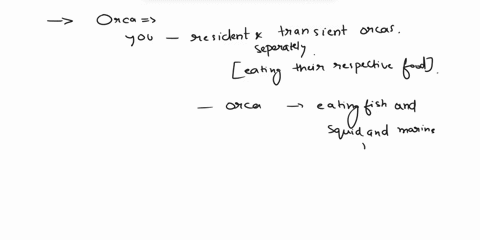 → Orca ⇒
you – resident & transient orcas.
seperately.
[eating their respective food].
– orca → eating fish and
squid and marine